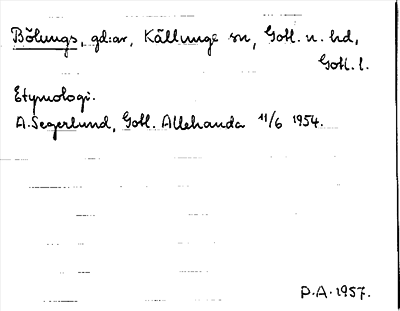 Bölungs, gd:ar, Källunge sn, Gotl. n. hd,
Gotl. l.
Etymologi.
A. Segerlund, Gotl. Allehanda 11/6 1954.
P.A. 1957.